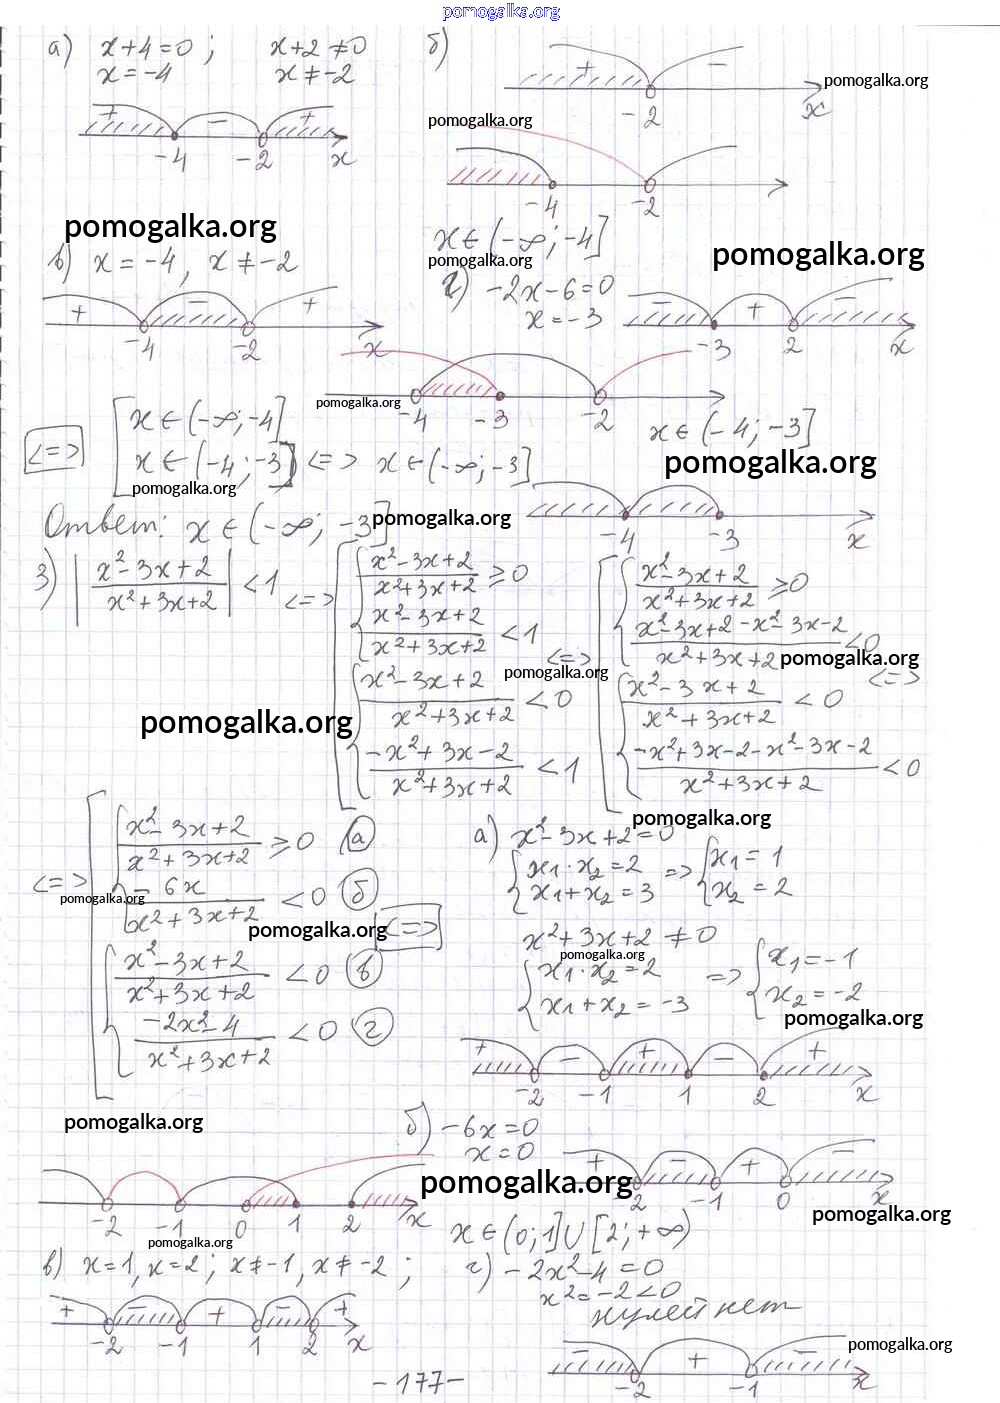 pomogalka.org
а) x+4=0 ; x+2≠0
x=-4 x≠-2
+ - +
-4 -2 x
б)
+ -
-2 x
pomogalka.org
pomogalka.org
-4 -2
x∈(-∞;-4]
pomogalka.org
pomogalka.org
pomogalka.org
в) x=-4, x≠-2
+ - +
-4 -2 x
г) -2x-6=0
x=-3
- + -
-3 2 x
pomogalka.org
-4 -3 -2
x∈(-4;-3]
<=> [ x∈(-∞;-4]
x∈(-4;-3] <=> x∈(-∞;-3]
pomogalka.org
pomogalka.org
-4 -3 x
Ответ: x∈(-∞; -3]
pomogalka.org
3) |(x²-3x+2)/(x²+3x+2)| <1 <=>
[ { (x²-3x+2)/(x²+3x+2) ≥0
(x²-3x+2)/(x²+3x+2) <1
{ (x²-3x+2)/(x²+3x+2) <0
(-x²+3x-2)/(x²+3x+2) <1
<=>
[ { (x²-3x+2)/(x²+3x+2) ≥0
(x²-3x+2-x²-3x-2)/(x²+3x+2) <0
{ (x²-3x+2)/(x²+3x+2) <0
(-x²+3x-2-x²-3x-2)/(x²+3x+2) <0
<=>
pomogalka.org
pomogalka.org
pomogalka.org
pomogalka.org
<=> [ { (x²-3x+2)/(x²+3x+2) ≥0 а
(-6x)/(x²+3x+2) <0 б
{ (x²-3x+2)/(x²+3x+2) <0 в
(-2x²-4)/(x²+3x+2) <0 г
<=>
pomogalka.org
pomogalka.org
а) x²-3x+2=0
{ x1·x2=2
x1+x2=3 => { x1=1
x2=2
x²+3x+2≠0
pomogalka.org
{ x1·x2=2
x1+x2=-3 => { x1=-1
x2=-2
pomogalka.org
+ - + - +
-2 -1 1 2 x
pomogalka.org
б) -6x=0
x=0
+ - + -
-2 -1 0 x
pomogalka.org
pomogalka.org
-2 -1 0 1 2 x
x∈(0;1]∪[2;+∞)
pomogalka.org
в) x=1, x=2; x≠-1, x≠-2 ;
+ - + - +
-2 -1 1 2 x
г) -2x²-4=0
x²=-2<0
нулей нет
pomogalka.org
- + -
-2 -1 x
-177-